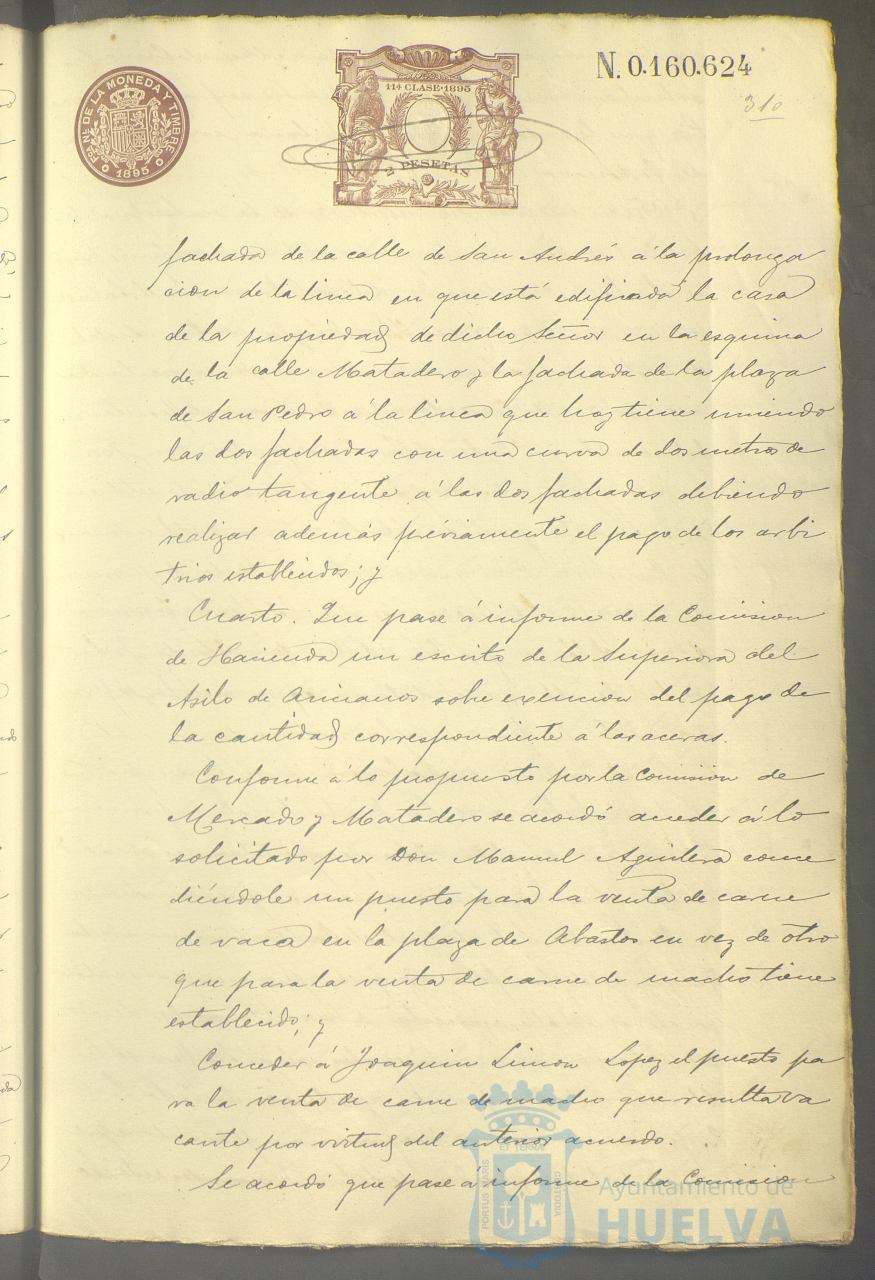 FAB. NAL. DE LA MONEDA Y TIMBRE
1895
11ª CLASE·1895
2 PESETAS
N. 0.160.624
310
fachada de la calle de San Andrés á la prolonga
cion de la linea en que está edificada la casa
de la propiedad de dicho Señor en la esquina
de la calle Matadero y la fachada de la plaza
de San Pedro á la linea que hoy tiene uniendo
las dos fachadas con una curva de dos metros de
radio tangente á las dos fachadas debiendo
realizar además préviamente el pago de los arbi
trios establecidos; y
Cuarto. Que pase á informe de la Comision
de Hacienda un escrito de la Superiora del
Asilo de Ancianos sobre exencion del pago de
la cantidad correspondiente á las aceras.
Conforme á lo propuesto por la Comision de
Mercado y Matadero se acordó acceder á lo
solicitado por Don Manuel Aguilera conce
diéndole un puesto para la venta de carne
de vaca en la plaza de Abastos en vez de otro
que para la venta de carne de macho tiene
establecido; y
Conceder á Joaquin Limon Lopez el puesto pa
ra la venta de carne de macho que resulta va
cante por virtud del anterior acuerdo.
Se acordó que pase á informe de la Comision
PORTUS MARIS ET TERRE CUSTODIA
Ayuntamiento de
HUELVA